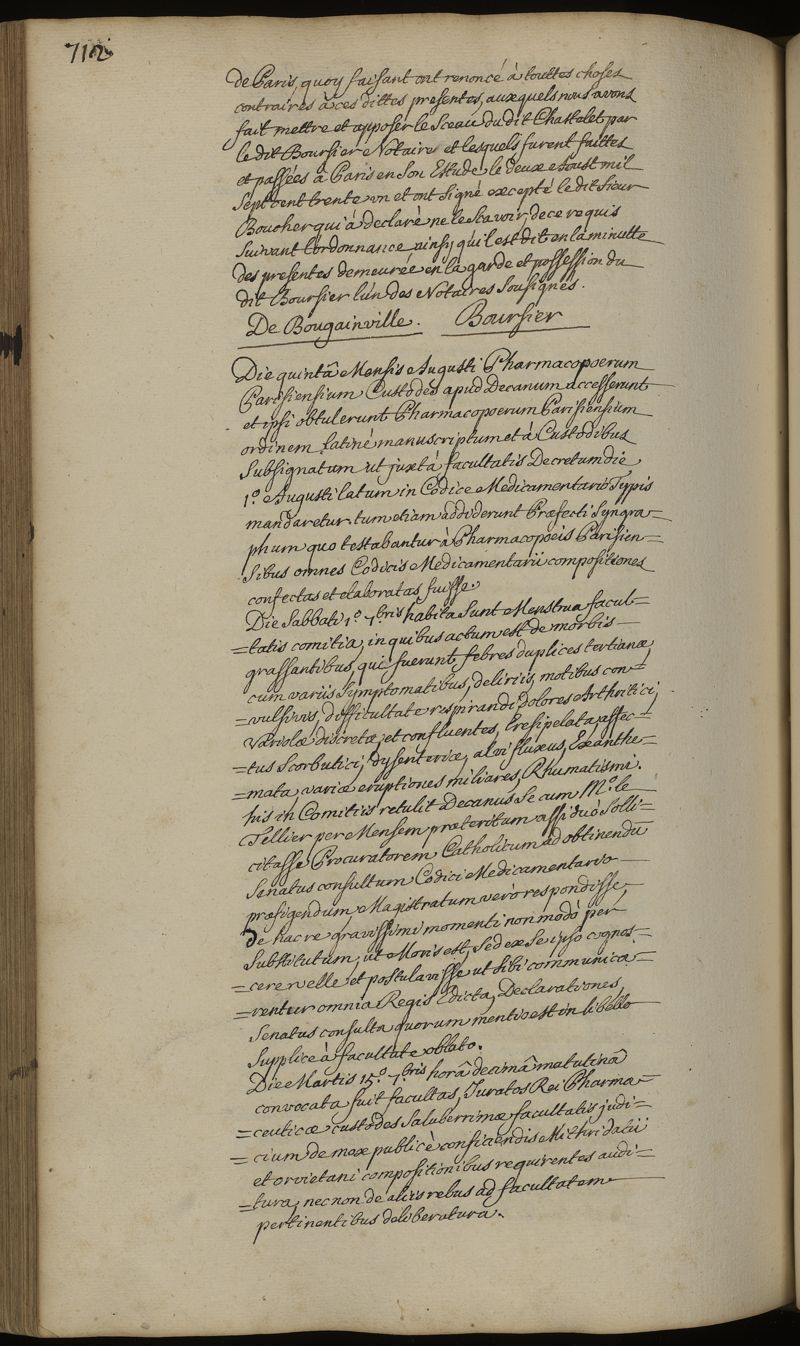 712
de Paris, quoy faisant ont renoncé à touttes choses
contraires à ces dittes presentes, auxquels nous avons
fait mettre et apposer le Sceau du dit Chastelet, par
le dit Boursier Notaire et lesquels furent faittes
et passées à Paris en Son Estude le deux Aoust mil
Sept cent trente un et ont Signé excepté le dit Sieur
Boucher qui à declaré ne le Scavoir, de ce requis
Suivant l'ordonnance ainsy qu'il est dit en la minutte
des presentes demeurée en la garde et possession du
dit Boursier l'un des Notaires Sousignés.
De Bougainville. Boursier
Die quintâ Mensis Augusti Pharmacopoerum
Parisiensium Custodes apud Decanum accesserunt
et ipsi obtulerunt Pharmacopoerum Parisiensium
ordinem latinè manuscriptum et à Custodibus
Subsignatum ut juxtà facultatis Decretum die
1.° Augusti latum in Codice Medicamentario Typis
mandaretur tum etiam addiderunt Præfecti Syngra=
phum quo testabantur à Pharmacopoeis Parisien=
Sibus omnes Codicis Medicamentarii compositiones
confectas et elaboratas fuisse.
Die Sabbati 1.° 7.bris habita Sunt Menstrua facul=
=tatis comitia, in quibus actum est de morbis
grassantibus, qui fuerunt, febres duplices tertianæ,
cum variis Symptomatibus, deliriis, motibus con=
=vulsivis, difficultate respirandi, dolores Arthritici,
Variolæ discretæ, et confluentes, Eresipelata, affec=
=tus Scorbutici, dysenteriæ, alvi fluxus, Exanthe=
=mata, variæ eruptiones miliares, Rhumatismi.
his in Comitiis retulit Decanus Se cum M.° le
Tellier per Mensem præteritum assiduò Solli=
citasse Procuratorem Catholicum ad obtinendū
Senatus consultum Codici Medicamentario
præfigendum, Magistratum verò respondisse,
De hac re gravissimi momenti non modò per
Substitutum, ut Moris est, Sed ex Se ipso cognos=
=cere velle et postulavisse ut Sibi communica=
=rentur omnia Regis Edicta, Declarationes,
Senatus consulta quorum mentio est in libello
Supplice à facultate oblato.
Die Martis 15.° 7.bris horâ decimâ matutinâ
convocata fuit facultas, Juratos Rei Pharma=
=ceuticæ custodes Saluberrimæ facultatis judi=
=cium de mox publicè conficiendis Mithridatii
et orvietani compositionibus requirentes audi=
=tura, nec non de aliis rebus ad facultatem
pertinentibus deliberatura.